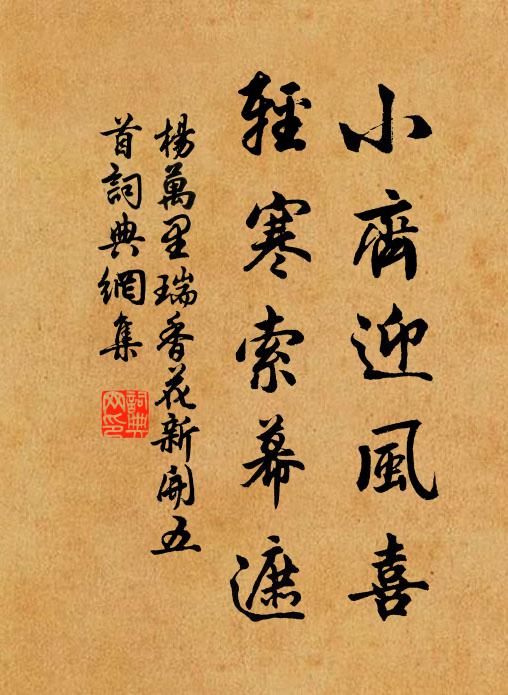 小齊迎風喜
輕寒索幕遮
楊萬里瑞香花新開五
首詞典網集
詞典
网印